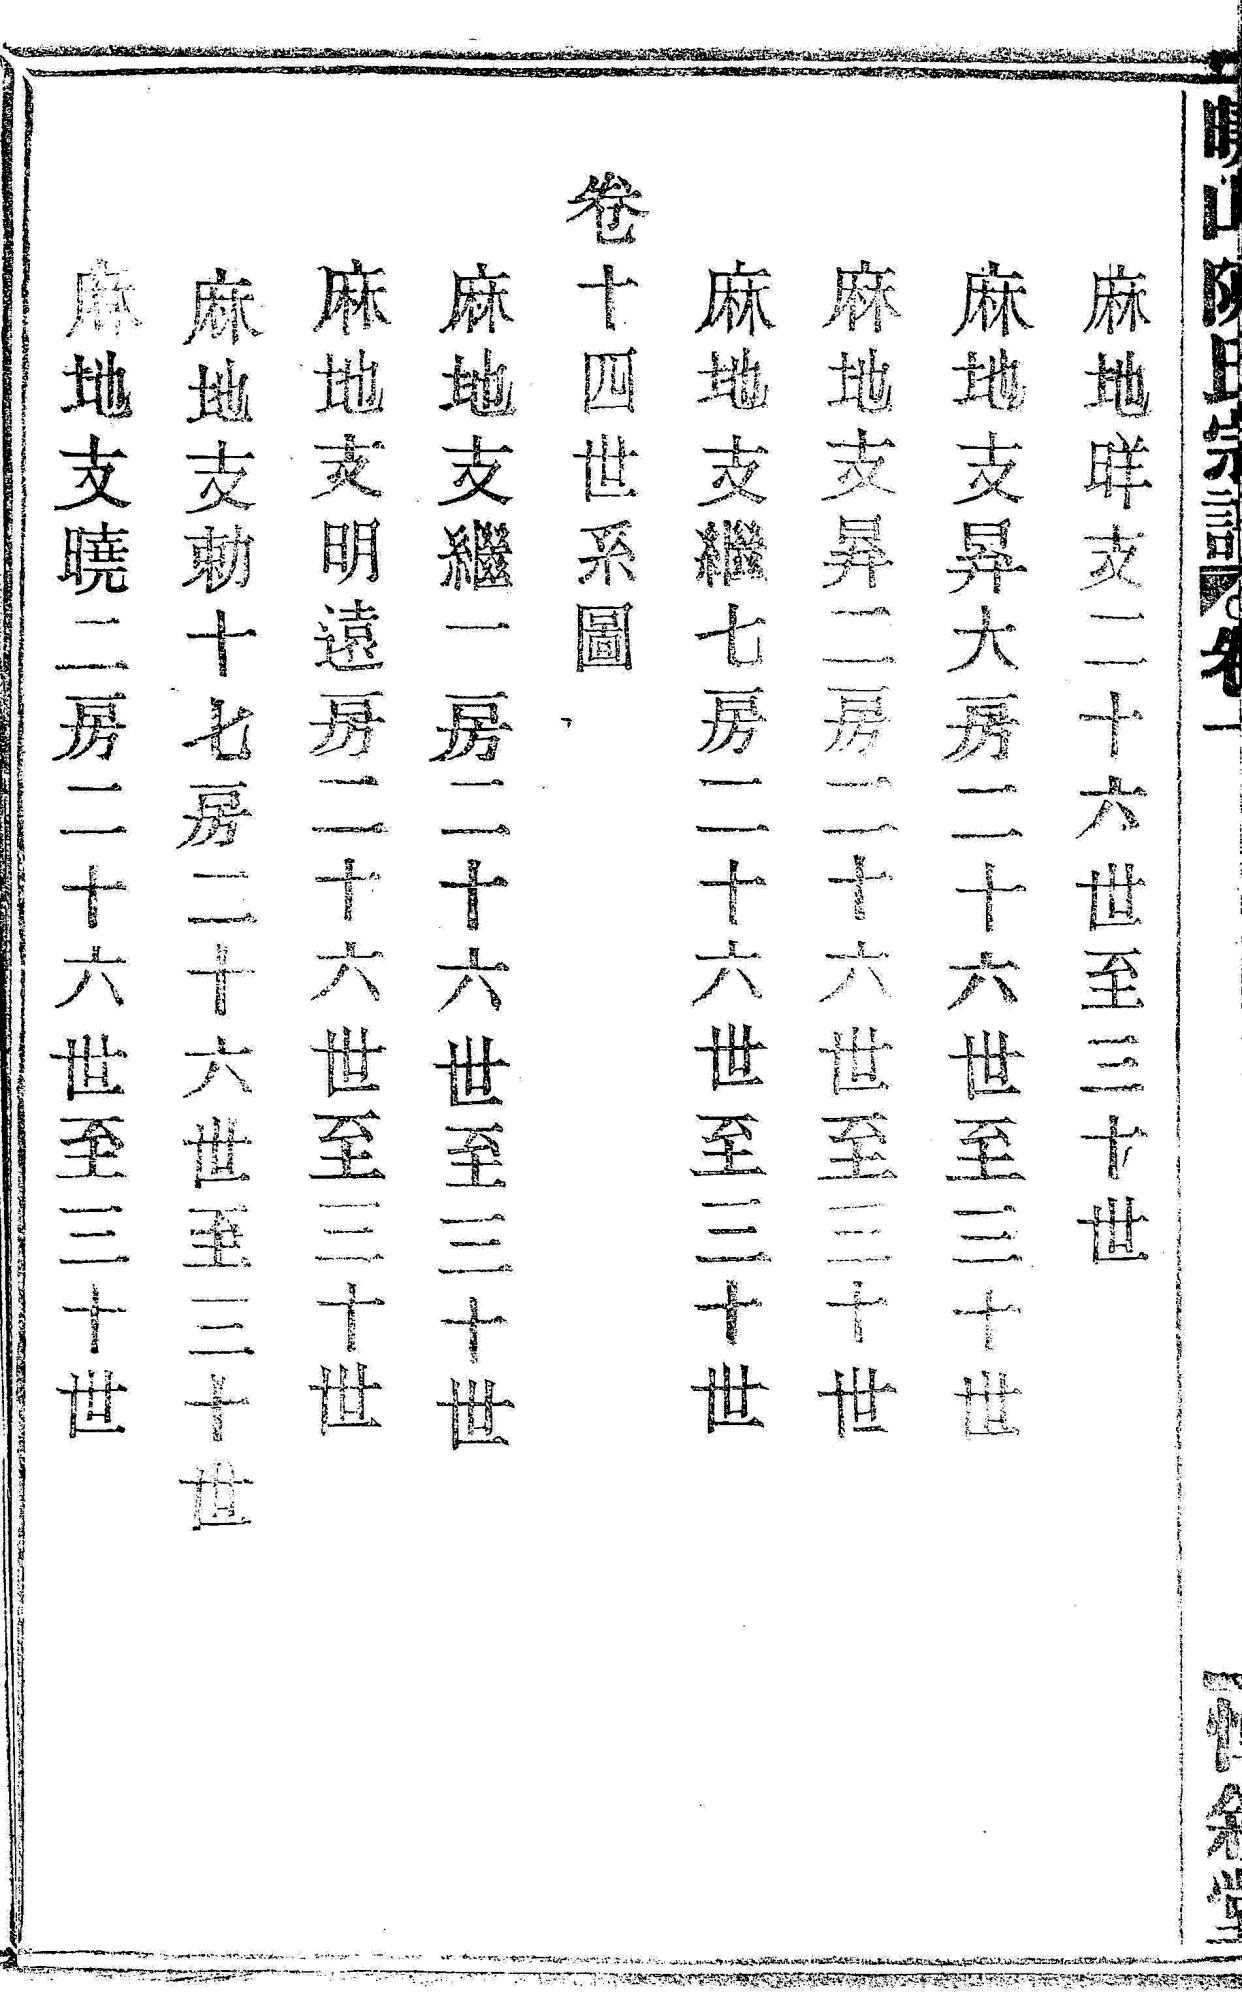 山陳氏宗譜 卷一
麻地支二十六世至三十世
麻地支昇大房二十六世至三十世
麻地支昇二房二十六世至三十世
麻地支繼七房二十六世至三十世
卷十四世系圖
麻地支繼一房二十六世至三十世
麻地支明遠房二十六世至三十世
麻地支勅十七房二十六世至三十世
麻地支曉二房二十六世至三十世